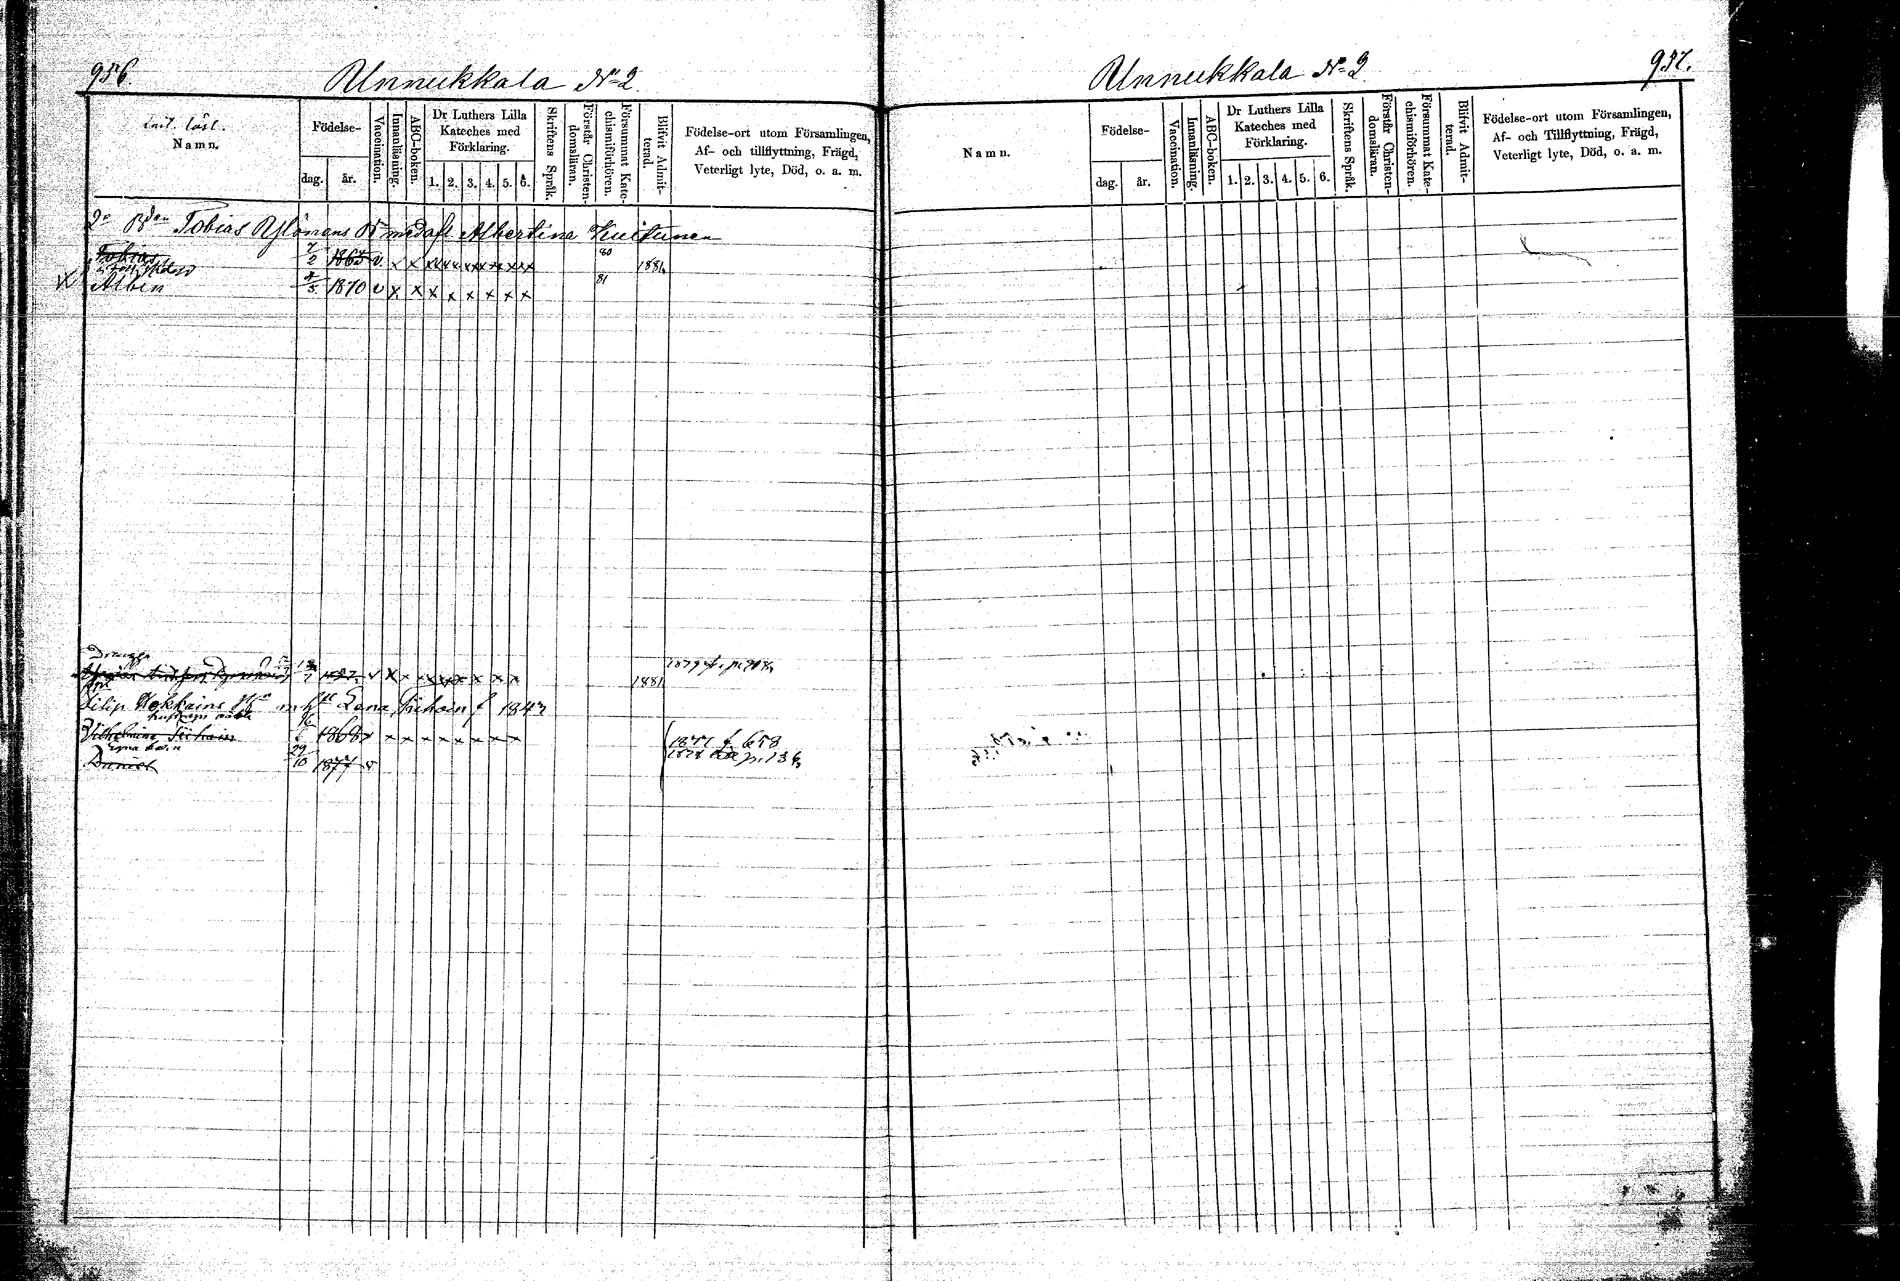 956.
Unnukkala No 2
Namn.
Födelse-
dag.
år.
Vaccination.
Innanläsning.
ABC-boken.
Dr Luthers Lilla
Kateches med
Förklaring.
1. 2. 3. 4. 5. 6.
Skriftens Språk.
Förstår Christen-
domsläran.
Försummat Kate-
chismiförhören.
Blifvit Admit-
terad.
Födelse-ort utom Församlingen,
Af- och tillflyttning, Frägd,
Veterligt lyte, Död, o. a. m.
Tobias Ylönens Albertina Kuitunen
Tobias 7/2 1865 v x x xx xx xx xx xx xx 80 1884
x Albin 1870 v x x x x x x x x 81
Drengen
1881
Filip Hokkains Lena Siihoin f 1843
Vilhelmina Siihoin 1868 v x x x x x x x x
1877 f 658
Daniel 29/10 1877 v
1878 p. 136
Unnukkala No 2
957.
Namn.
Födelse-
dag.
år.
Vaccination.
Innanläsning.
ABC-boken.
Dr Luthers Lilla
Kateches med
Förklaring.
1. 2. 3. 4. 5. 6.
Skriftens Språk.
Förstår Christen-
domsläran.
Försummat Kate-
chismiförhören.
Blifvit Admit-
terad.
Födelse-ort utom Församlingen,
Af- och Tillflyttning, Frägd,
Veterligt lyte, Död, o. a. m.